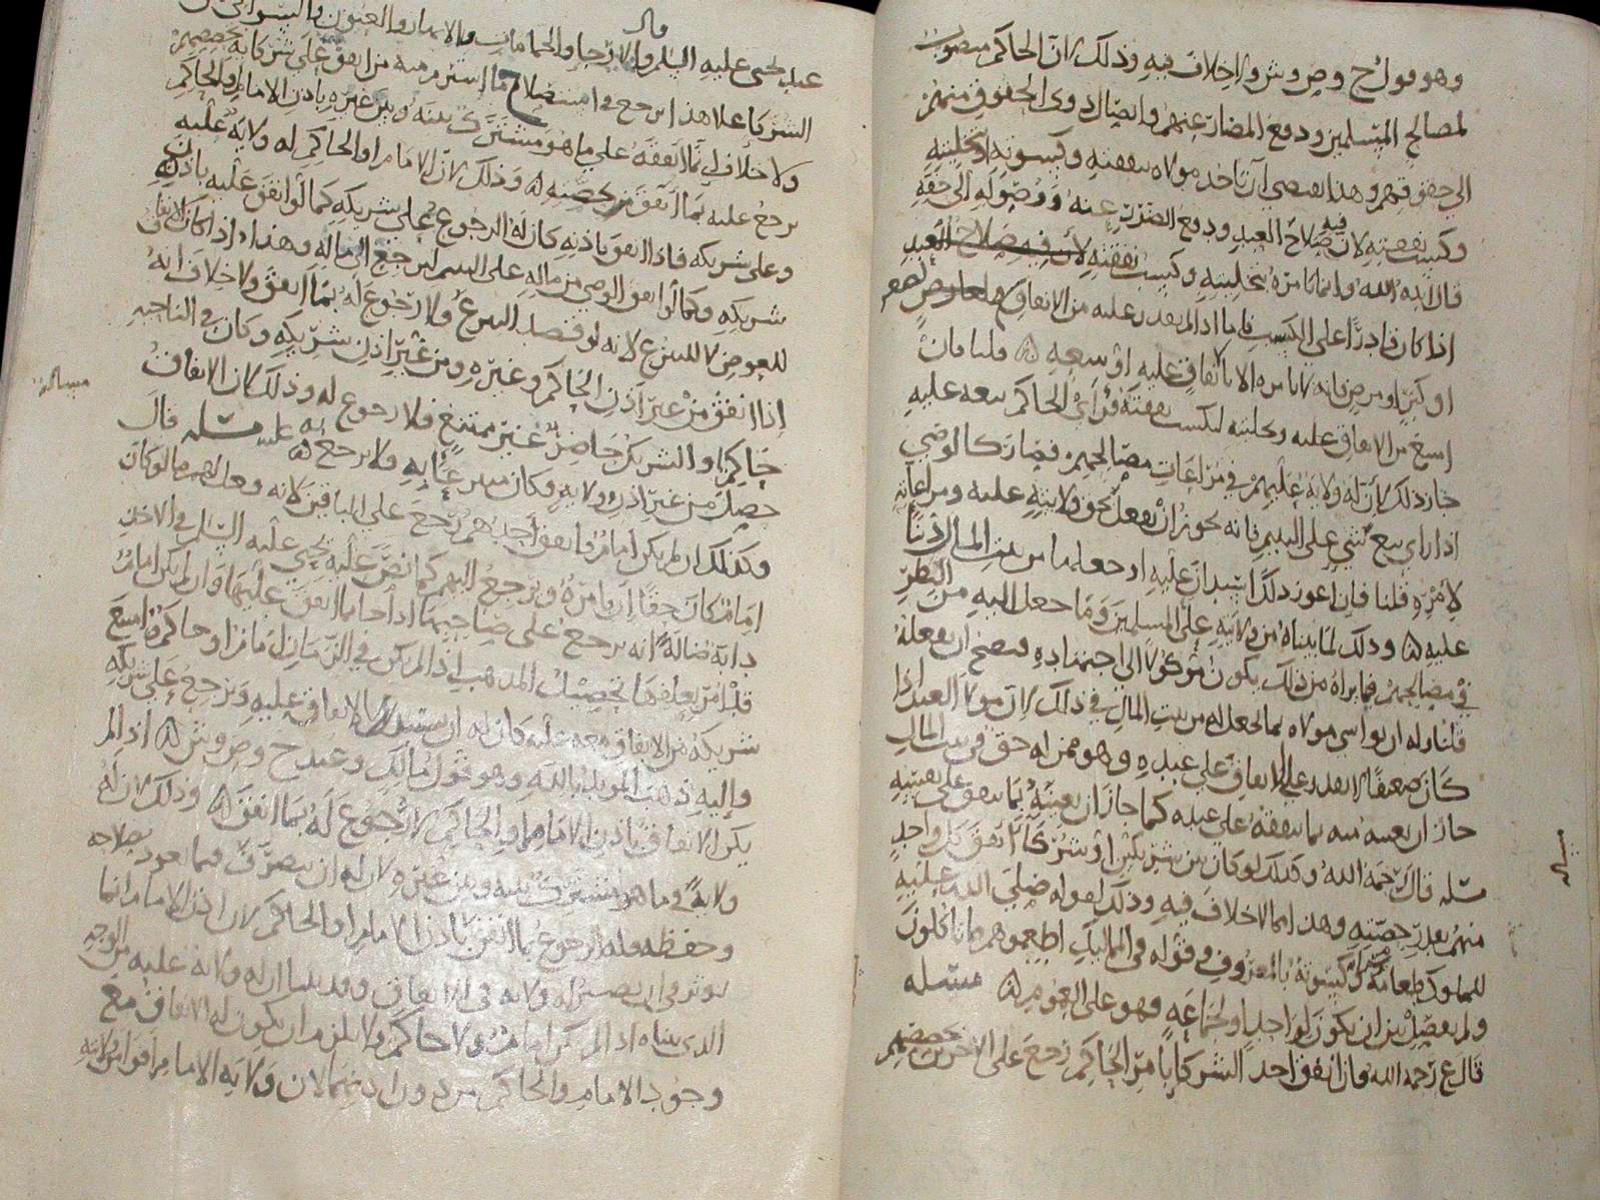 وهو قول ح وص وش ولا خلاف فيه وذلك لان الحاكم منصوب
لمصالح المسلمين ودفع المضار عنهم وايصال ذوي الحقوق منهم
الى حقوقهم وهذا يقتضي ان تاخذ مولاه بنفقته وكسوته او تخليته
وكسب نفقته لان فيه صلاح العبد ودفع الضرر عنه ووصوله الى حقه
قال ايده الله وانما نامره بتخليته وكسب نفقته لان فيه صلاح العبد
اذا كان قادرا على الكسب فاما اذا لم يقدر عليه من الانفاق
او كبر او مرض فانه لا نامره الا بانفاق عليه او بيعه ٥ قلنا فان
امتنع من الانفاق عليه وتخليته لكسب نفقته فراى الحاكم بيعه عليه
جاز ذلك لان له ولاية عليهم في مراعات مصالحهم فصار كالوصي
اذا راى بيع شي على اليتيم فانه يجوز ان يفعل بحق ولايته عليه ومراعاته
لامره قلنا فان اعوز ذلك استدان عليه او جعله ما من بيت المال دينا
عليه ٥ وذلك لما بيناه من ولايته على المسلمين وما جعل اليه من النظر
في مصالحهم فما يراه من ذلك يكون موكولا الى اجتهاده فيصح ان يفعله
قلنا وله ان يواسي مولاه بما يجعل له من بيت المال في ذلك لان مولا العبد اذا
كان ضعيفا لا يقدر على الانفاق على عبده وهو ممن له حق في بيت المال
جاز ان يعينه منه بما ينفقه على عبده كما جاز ان يعينه بما ينفق على نفسه
مسله قال رحمه الله وكذلك لو كان بين شريكين او شركا انفق كل واحد
منهم بقدر حصته وهذا مما لا خلاف فيه وذلك لقوله صلى الله عليه
للمملوك طعامه وكسوته بالمعروف وقوله في المماليك اطعموهم مما تاكلون
ولم يفصل بين ان يكون لواحد او لجماعة فهو على العموم ٥ مسله
قال ع رحمه الله فان انفق احد الشركا بامر الحاكم رجع على الاخرين بحصصهم
مسله
قال
عبد يحيى عليه السلم والارحا والحمامات والابار والعيون
الشركا على هذا يرجع في استصلاح ما استرم منه من انفق على شركائه بحصصهم
ولا خلاف في ما انفقه على ما هو مشترك بينه وبين غيره باذن الامام او الحاكم
يرجع عليه بما انفق من حصته ٥ وذلك لان الامام او الحاكم له ولاية عليه
وعلى شريكه فاذا انفق باذنه كان له الرجوع على شريكه كما لو انفق عليه باذن
شريكه وكما لو انفق الوصي من ماله على اليتيم ليرجع الى ماله وهذا اذا كان الانفاق
للعوض لا للتبرع لانه لو قصد التبرع فلا رجوع له بما انفق ولا خلاف انه
اذا انفق من غير اذن الحاكم وغيره ومن غير اذن شريكه وكان في الناحية
حاكم او الشريك حاضر غير ممتنع فلا رجوع له وذلك لان الانفاق
حصل من غير اذن ولاية وكان متبرعا به ولا يرجع به عليه مسله قال
وكذلك ان لم يكن امام فانفق احدهم رجع على الباقين لانه وعلى لو كان
امام كان حقا ان يامره ويرجع اليهم كما نص عليه يحيى عليه السلم في الاخذ
دابة ضالة انه يرجع على صاحبها اذا جا بما انفق عليها وان لم يكن امام
قبل امر بعلفها تحصيل المذهب اذا لم يكن في الزمان امام او حاكم وامتنع
شريكه من الانفاق معه عليه كان له ان يستبد بالانفاق عليه ويرجع على شريكه
واليه ذهب المويد بالله وهو قول مالك وعند ح وص وش ٥ اذا لم
يكن الانفاق باذن الامام او الحاكم لا رجوع له بما انفق ٥ وذلك لان له
ولاية في ما هو مشترك بينه وبين غيره لان له ان يتصرف فيما يعود بصلاحه
وحفظه وله الرجوع بما انفق باذن الامام او الحاكم لان اذن الامام انما
يوثر في ان يصير له ولاية في الانفاق وقد بينا ان له ولاية عليه من الوجه
الذي بيناه اذا لم يكن امام ولا حاكم ولا يلزم ان يكون له الانفاق مع
وجود الامام والحاكم من دون اذنهما لان ولاية الامام اقوى من ولايته
مساله